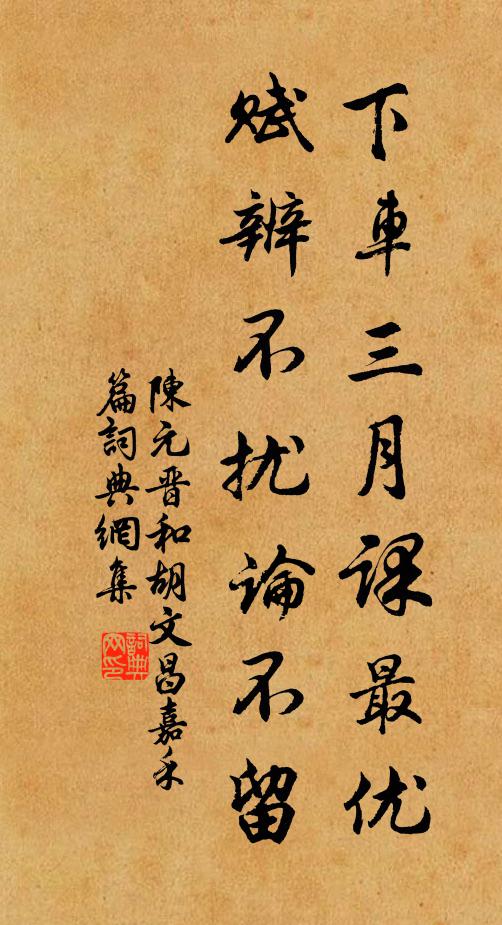 下車三月課最优
赋辨不扰論不留
陳元晋和胡文昌嘉禾
篇詞典網集
詞典网印